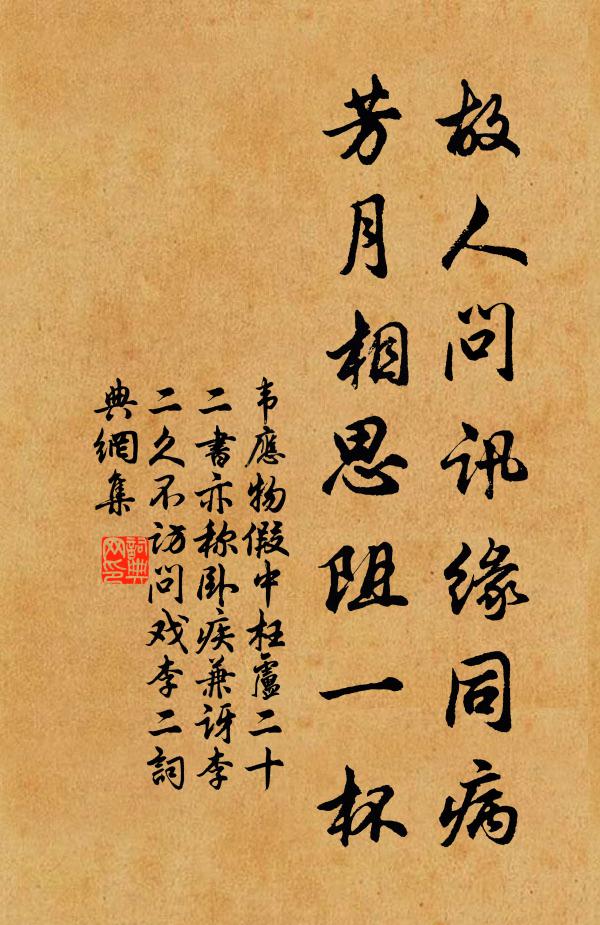 故人问讯缘同病
芳月相思阻一杯
韦應物假中枉盧二十
二書亦称卧疾兼讶李
二久不访問戏李二詞
典網集
詞典
网印